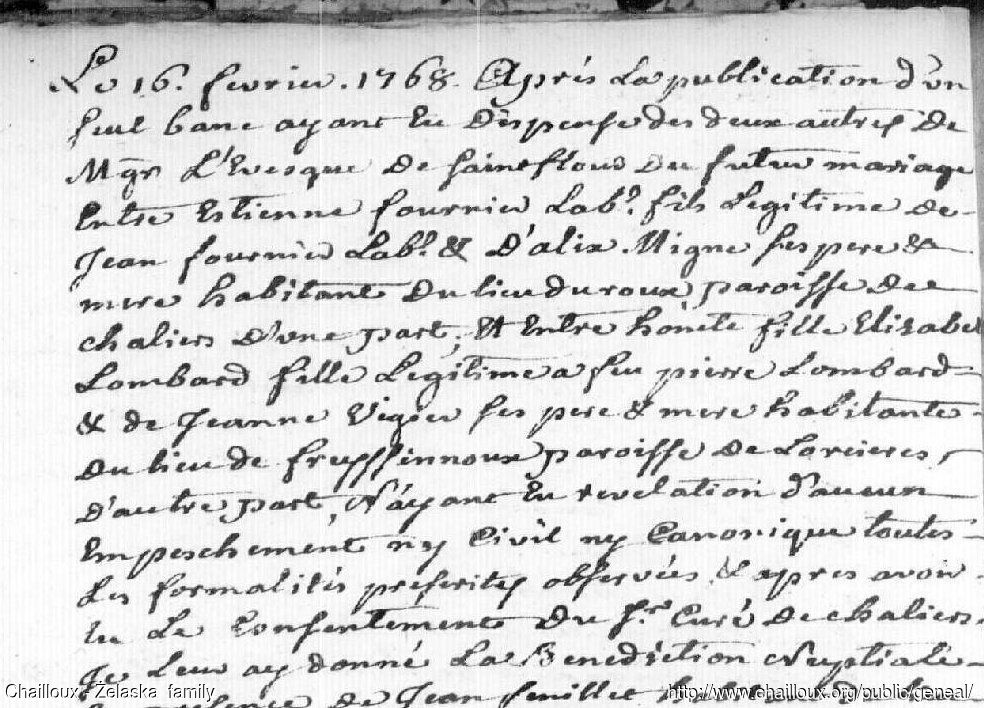 Le 16. fevrier. 1768. Aprés La publication d'un
seul banc ayant Eu Dispense des deux autres De
Mgr L'Evesque De Saintflour Du futur mariage
Entre Estienne fournier Labr. fils Legitime De
Jean fournier Labr. & D'alix Migne ses pere &
mere habitant Du lieu du roux paroisse De
chaliers D'une part, Et Entre honete fille Elizabet
Lombard fille Legitime a feu pierre Lombard
& de Jeanne Vigier ses pere & mere habitante
Du lieu de freyssinnoux paroisse De Lorcieres,
D'autre part, N'ayant Eu revelation D'aucun
Empeschement ny Civil ny Canonique toutes
Les formalités prescrites observées, & apres avoir
lu Le Consentement Du Sr. Curé De chaliers.
Je Leur ay donné La Benediction Nuptiale
Jean
Chailloux - Zelaska family
http://www.chailloux.org/public/geneal/